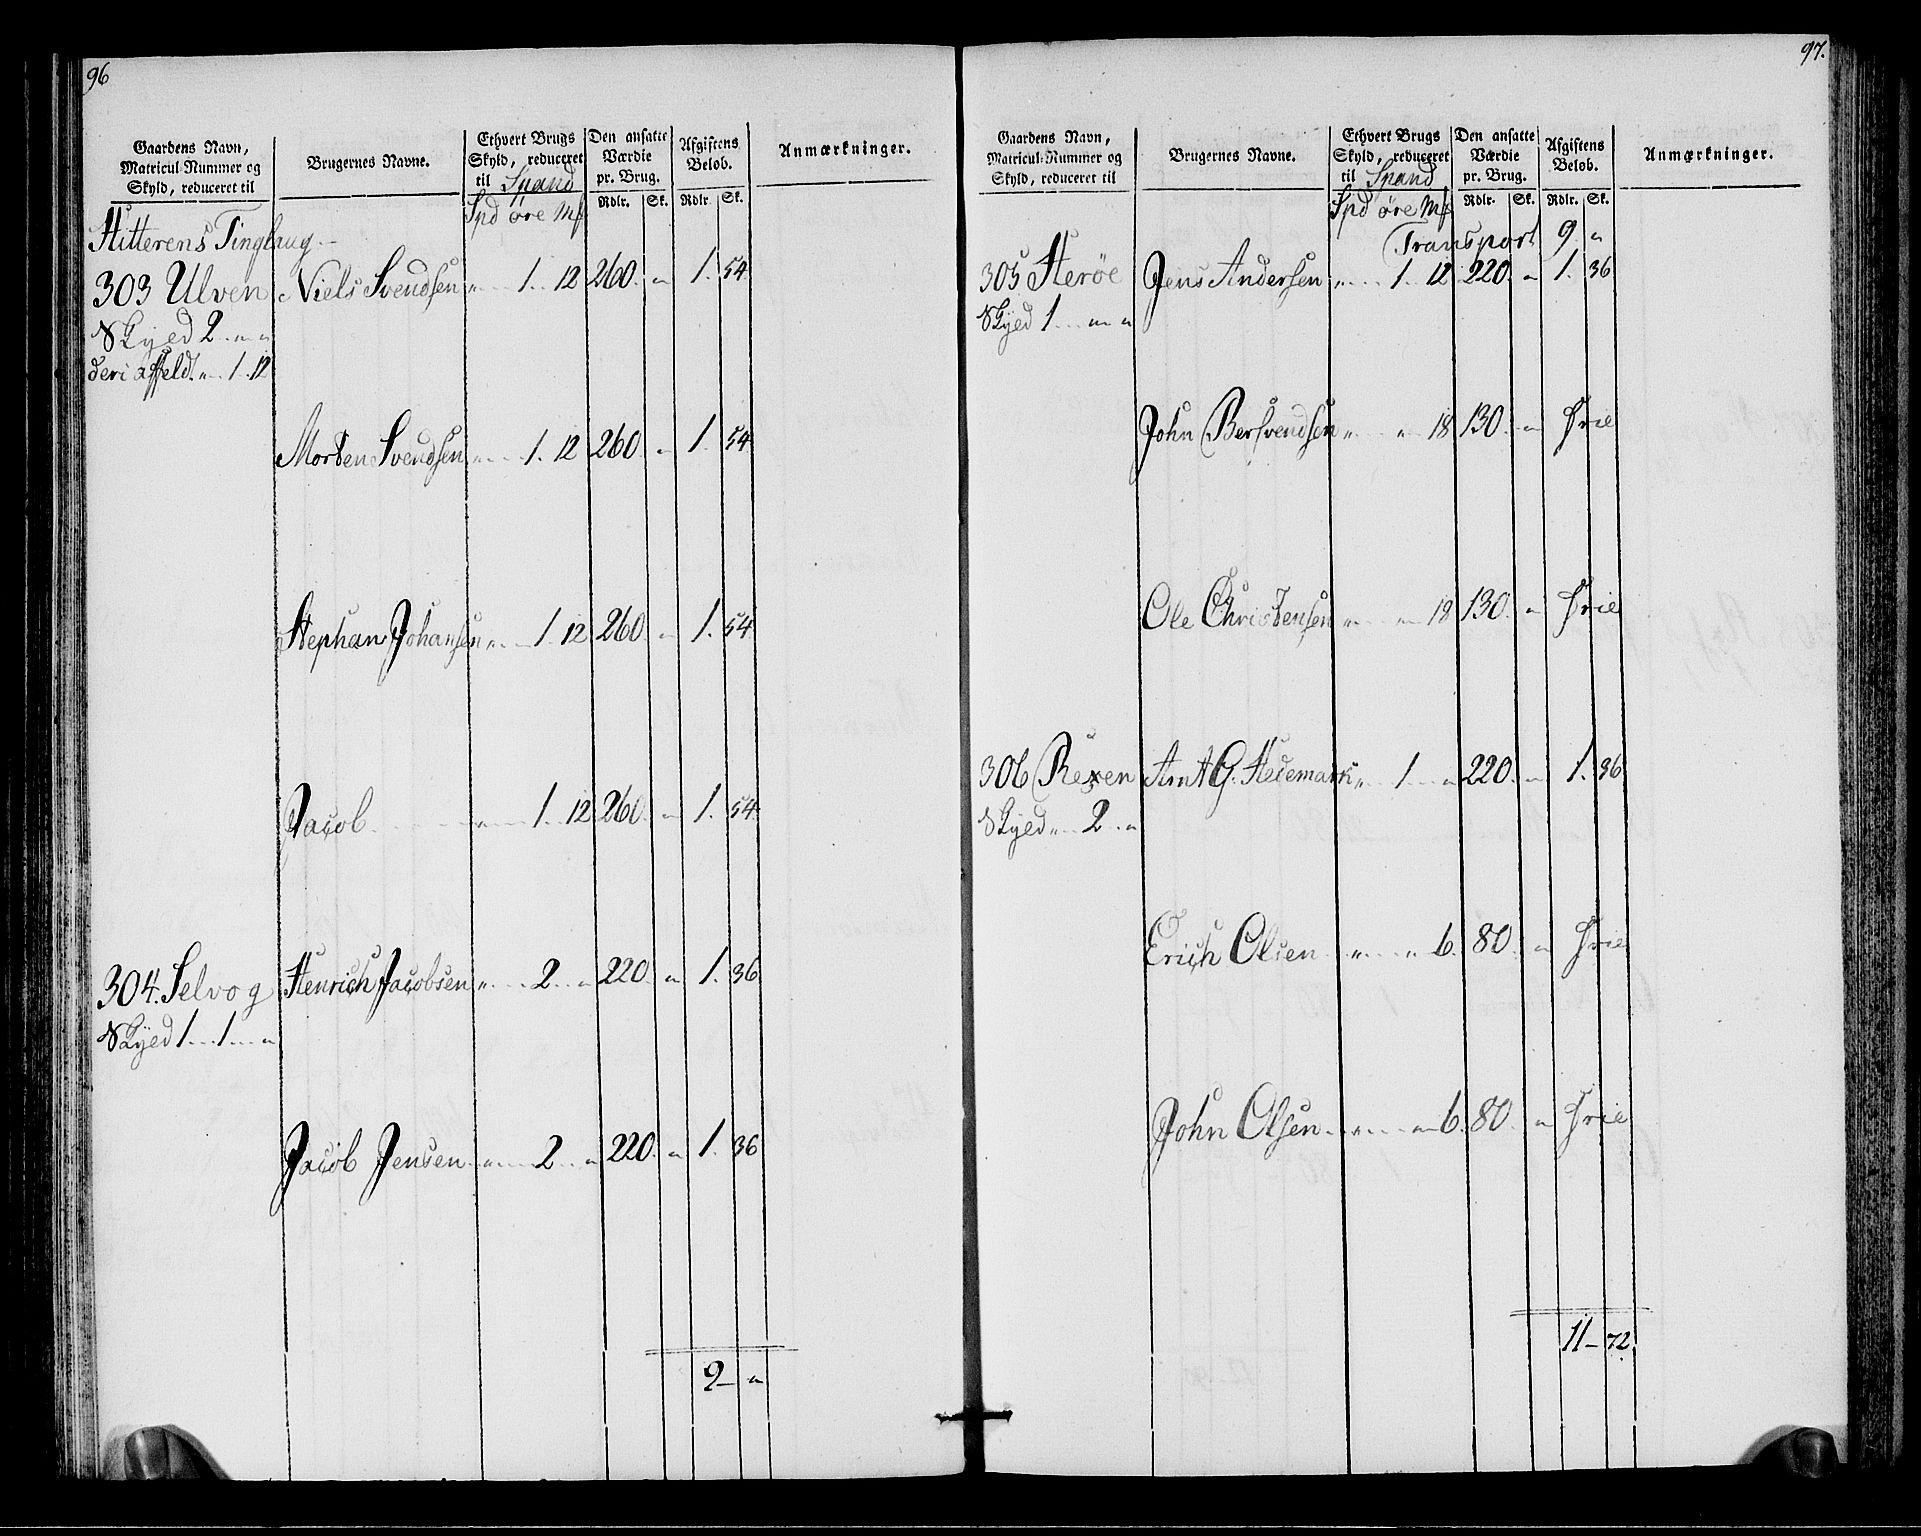 96
Gaardens Navn, Matricul-Nummer og Skyld, reduceret til
Brugernes Navne.
Ethvert Brugs Skyld, reduceret til Spand
Den ansatte Værdie pr. Brug.
Afgiftens Beløb.
Anmærkninger.
Spd öre Mk
Rdlr. Sk. Rdlr. Sk.
Hitterens Tinglaug
303 Ulven Niels Svendsen „ 1 12 260 „ 1. 54
Skyed 2 „ „
deri affeldt „ 1. 12
Morten Svendsen „ 1. 12 260 „ 1. 54
Stephan Johansen „ 1. 12 260 „ 1. 54
Jacob „ 1. 12 260 „ 1. 54
304. Selvog Henrich Jacobsen „ 2 „ 220 „ 1. 36
Skyed 1 1 „
Jacob Jensen „ 2 „ 220 „ 1. 36
9 „
97.
Gaardens Navn, Matricul-Nummer og Skyld, reduceret til
Brugernes Navne.
Ethvert Brugs Skyld, reduceret til Spand
Den ansatte Værdie pr. Brug.
Afgiftens Beløb.
Anmærkninger.
Spd öre Mk
Rdlr. Sk. Rdlr. Sk.
Transport 9 „
305 Sterøe Jens Andersen „ 1 12 220 „ 1. 36
Skyed 1 „ „
John Bersvendsen „ „ 18 130 „ Frie
Ole Christensen „ „ 18 130 „ Frie
306 Rexen Arnt G. Hedemark „ 1 „ 220 „ 1. 36
Skyed „ 2 „
Erich Olsen „ „ 6 80 „ Frie
John Olsen „ „ 6 80 „ Frie
11 72